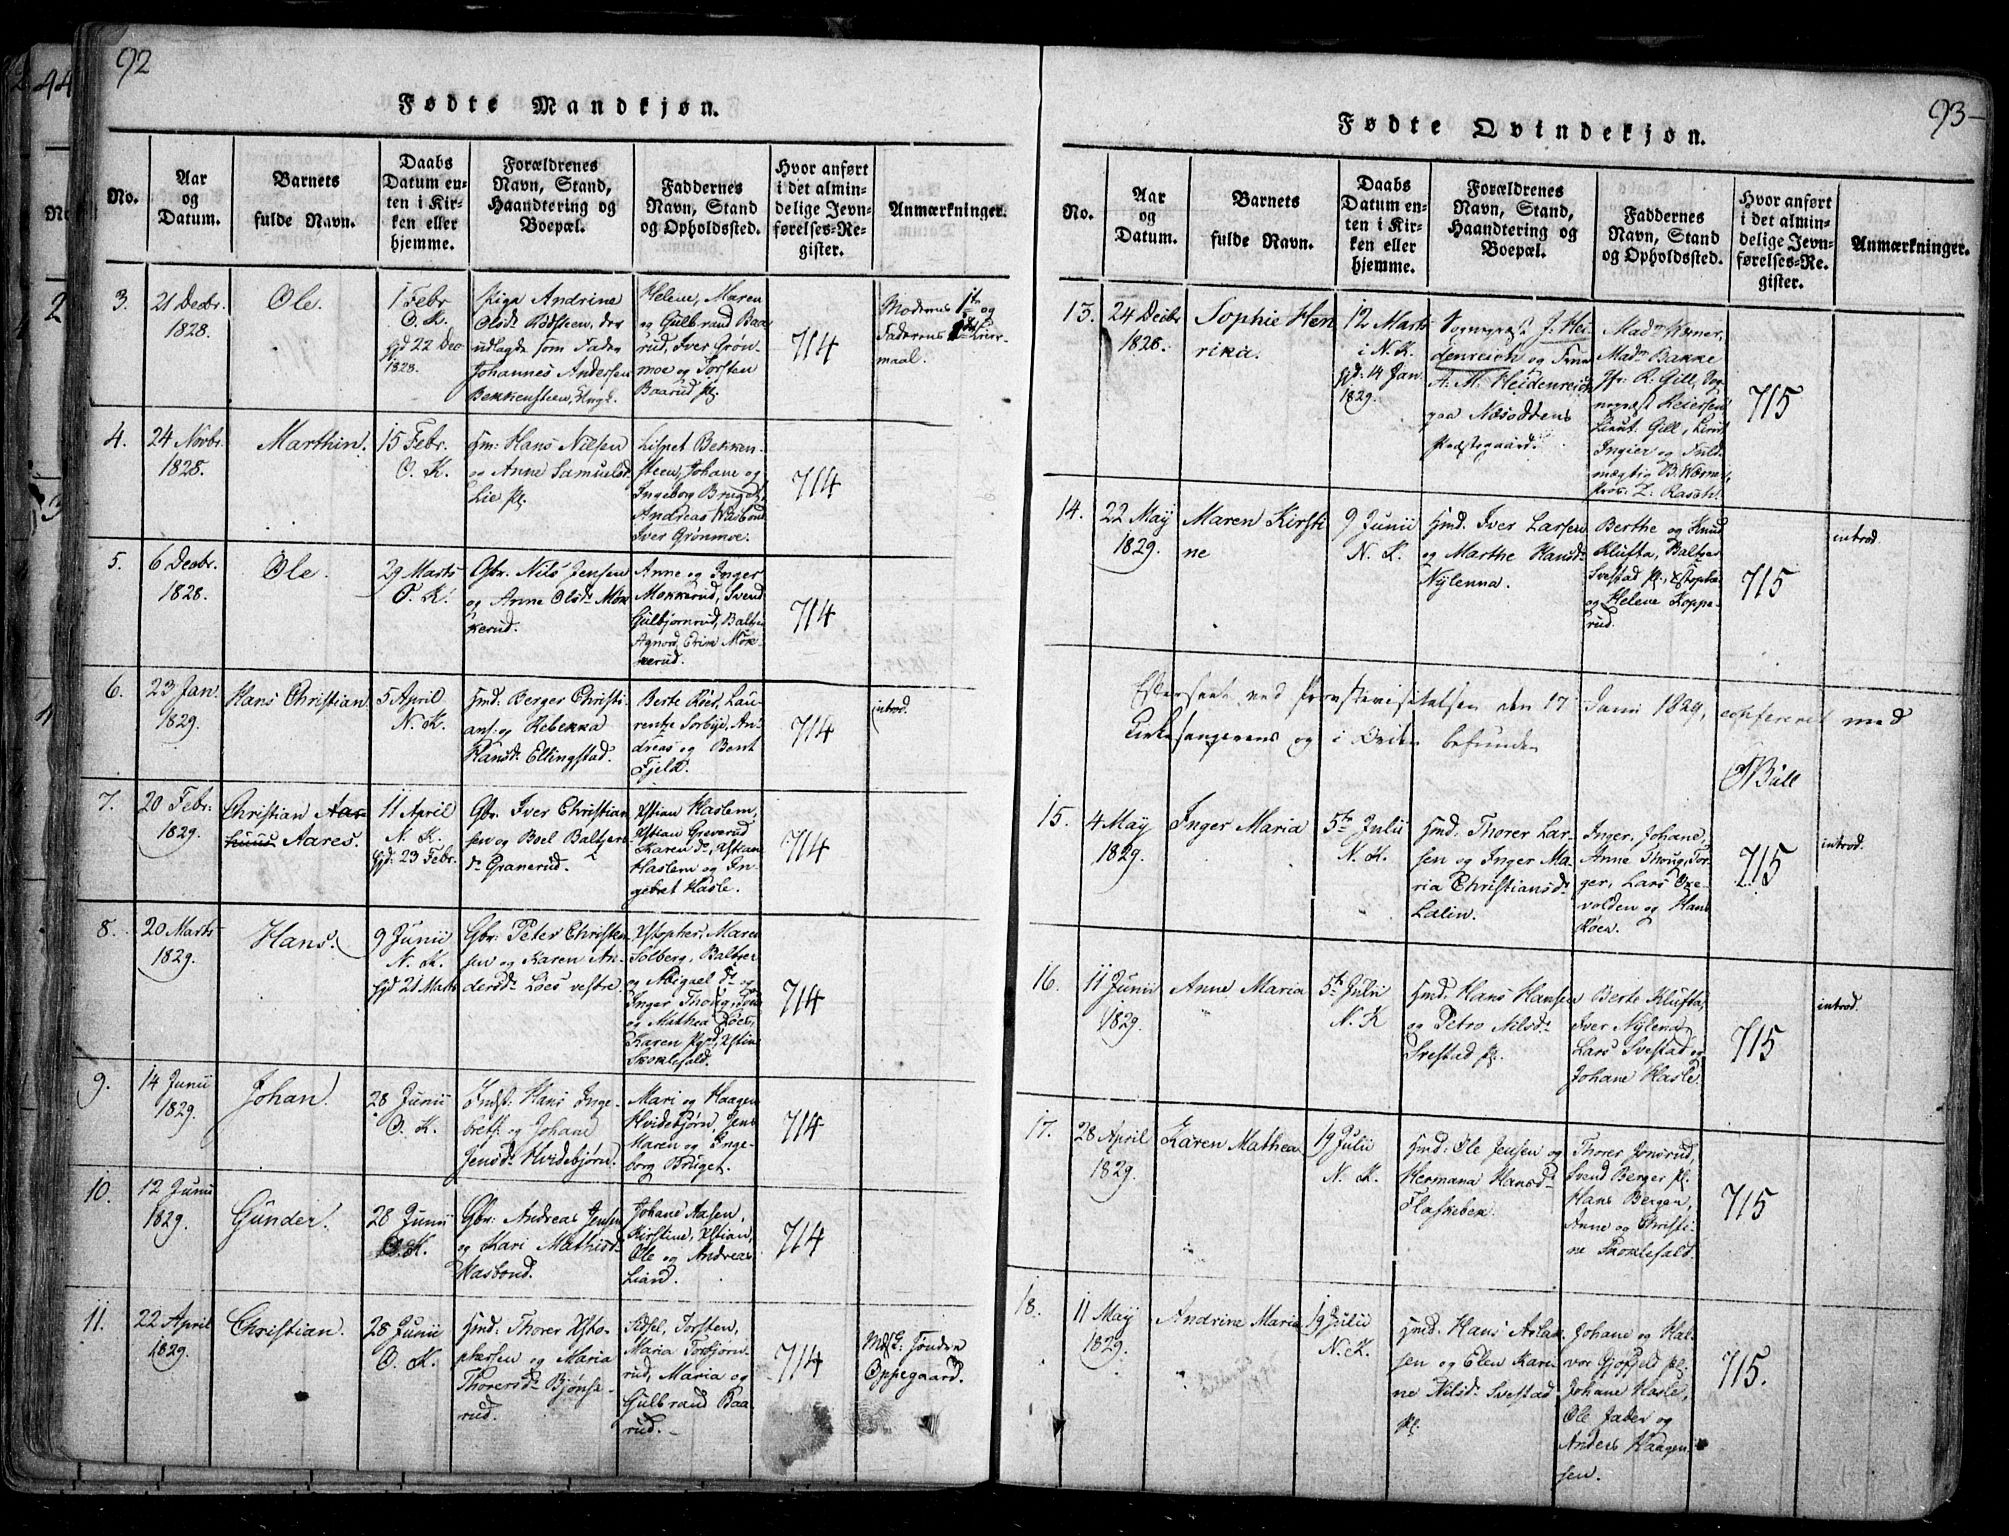 92
Fødte Mandkjøn.
No.
Aar
og
Datum.
Barnets
fulde Navn.
Daabs
Datum en-
ten i Kir-
ken eller
hjemme.
Forældrenes
Navn, Stand,
Haandtering og
Boepæl.
Faddernes
Navn, Stand
og Opholdssted.
Hvor anført
i det almin-
delige Jevn-
førelses-Re-
gister.
Anmærkninger.
3.
21 Decbr.
1828.
Ole.
1 Febr
O. K.
hjd 22 Dec
1828.
Piga Andrine
Olsdr Rødsteen, der
udlagde som Fader
Johannes Andersen
Bekkensteen,
Helene, Maren
og Gulbrand Baa
rud, Iver Grøn-
moe og Torsten
Baarud pl.
714
Moderens 1te og
Faderens Leier-
maal.
4.
24 Novbr.
1828.
Marthin.
15 Febr.
O. K.
Hmd: Hans Nilsen
og Anne Samuelsd.
Lie pl.
Lispet Bekken-
steen, Johane og
Ingeborg Bruget,
Andreas Wasbond
Iver Grønmoe.
714
5.
6 Decbr.
1828.
Ole.
29 Marts
O. K.
Gbr. Nils Jensen
og Anne Olsdr Mok
kerud.
Anne og Inger
Mokkerud, Svend
Gulbjørnrud, Baltzer
Agnord, Mok-
kerud.
714
6.
23 Jan.
1829.
Hans Christian
5 April
N. K.
Hmd. Berger Christi
ans: og Rebekka
Hansd. Ellingstad.
Berte Röer, Lau-
rente Sorbye, An-
dreas og Bent
Fjeld.
714
introd.
7.
20 Febr.
1829.
Christian Aar-
huus Aares.
11 April
N. K.
hjd: 23 Febr.
Gbr. Iver Christian
sen og Boel Baltzers
dr Granerud.
Xstian Haslem,
Xstian Greverud
Karen dr, Xstian
Haslem og In-
gebret Hasle.
714
8.
20 Marts
1829.
Hans.
9 Junii
N. K.
hjd 21 Marts
Gbr: Peter Christen
sen og Karen An-
dersdr Löes vestre.
Xstopher, Maren
Solberg, Baltzer
og Abigael dr og
Inger Thoug,
og Mathea Löes,
Karen
Skoklefald.
714
9.
14 Junii
1829.
Johan.
28 Junii
O. K.
Indst. Hans Inge-
brets: og Johane
Jensdr Hvidebjørn.
Mari og Haagen
Hvidebjørn, Jens
Maren og Inge-
borg Bruget.
714
10.
12 Junii
1829.
Günder.
28 Junii
O. K.
Gbr. Andreas Jensen
og Kari Mathisdr
Wasbond.
Johane Aasen,
Kirstine, Xstian,
Ole og Andreas
Liand.
714
11.
22 April
1829.
Christian.
28 Junii
O. K.
Hmd: Thorer Xsto-
phersen og Maria
Thorersdr Bjønse-
rud.
Sidsel, Torsten,
Maria Torbjørn-
rud, Maria og
Gulbrand Baa-
rud.
714
Söndre
Oppegaard.
93
Fødte Qvindekjøn.
No.
Aar
og
Datum.
Barnets
fulde Navn.
Daabs
Datum en-
ten i Kir-
ken eller
hjemme.
Forældrenes
Navn, Stand,
Haandtering og
Boepæl.
Faddernes
Navn, Stand
og Opholdssted.
Hvor anført
i det almin-
delige Jevn-
førelses-Re-
gister.
Anmærkninger.
13.
24 Decbr
1828.
Sophie Hen
rika.
12 Marts
i N. K.
hjd: 14 Jan
1829.
Sognepræst J. Hei
denreich og Frue
A. M. Heidenreich
paa Næsoddens
Præstegaard.
Madm Wærner,
Madm Bakke
Jfr. R. Gill, Sog
nepræst Reiersen
Lieut. Gill, Lieut
Ingier og Fuld-
mægtig B. Wærner,
Z. Rasch.
715
14.
22 May
1829.
Maren Kirsti
ne
9 Junii
N. K.
Hmd. Iver Larsen
og Marthe Hansdr
Nylenna.
Berthe og Knud
Klufta, Baltzer
Svestad pl., Xstopher
og Helene Koppe-
rud.
715
introd.
Efterseet ved Provstevisitatsen den 17 Juni 1829, confereret med
Kirkesangerens og i Orden befunden
Bull
15.
4 May
1829.
Inger Maria
5te Julii
N. K.
Hmd: Thorer Lar-
sen og Inger Ma-
ria Christiansdr
Lalin.
Inger, Johane,
Anne Thoug, Tor-
ger, Lars Oxe-
volden og Hans
Röer.
715
introd.
16.
11 Junii
1829.
Anne Maria
5te Julii
N. K
Hmd. Hans Hansen
og Petro Nilsdr
Svestad pl.
Berte Klufta,
Iver Nylena
Lars Svestad og
Johane Hasle.
715
introd.
17.
28 April
1829.
Karen Mathea
19 Julii
N. K.
Hmd: Ole Jensen og
Hermana Hansdr
Flaskebek.
Thorer Jonsrud,
Svend Berger pl.
Hans Berger,
Anne og Christi-
ne Skoklefald.
715
18.
11 May
1829.
Andrine Maria
19 Julii
N. K.
Hmd. Hans Aslak-
sen og Elen Kari-
ne Nilsdr Svestad
pl.
Johane og Hal-
vor Gjøfjeld pl.
Johane Hasle,
Ole Jader og
Anders Haagen-
sen.
715.